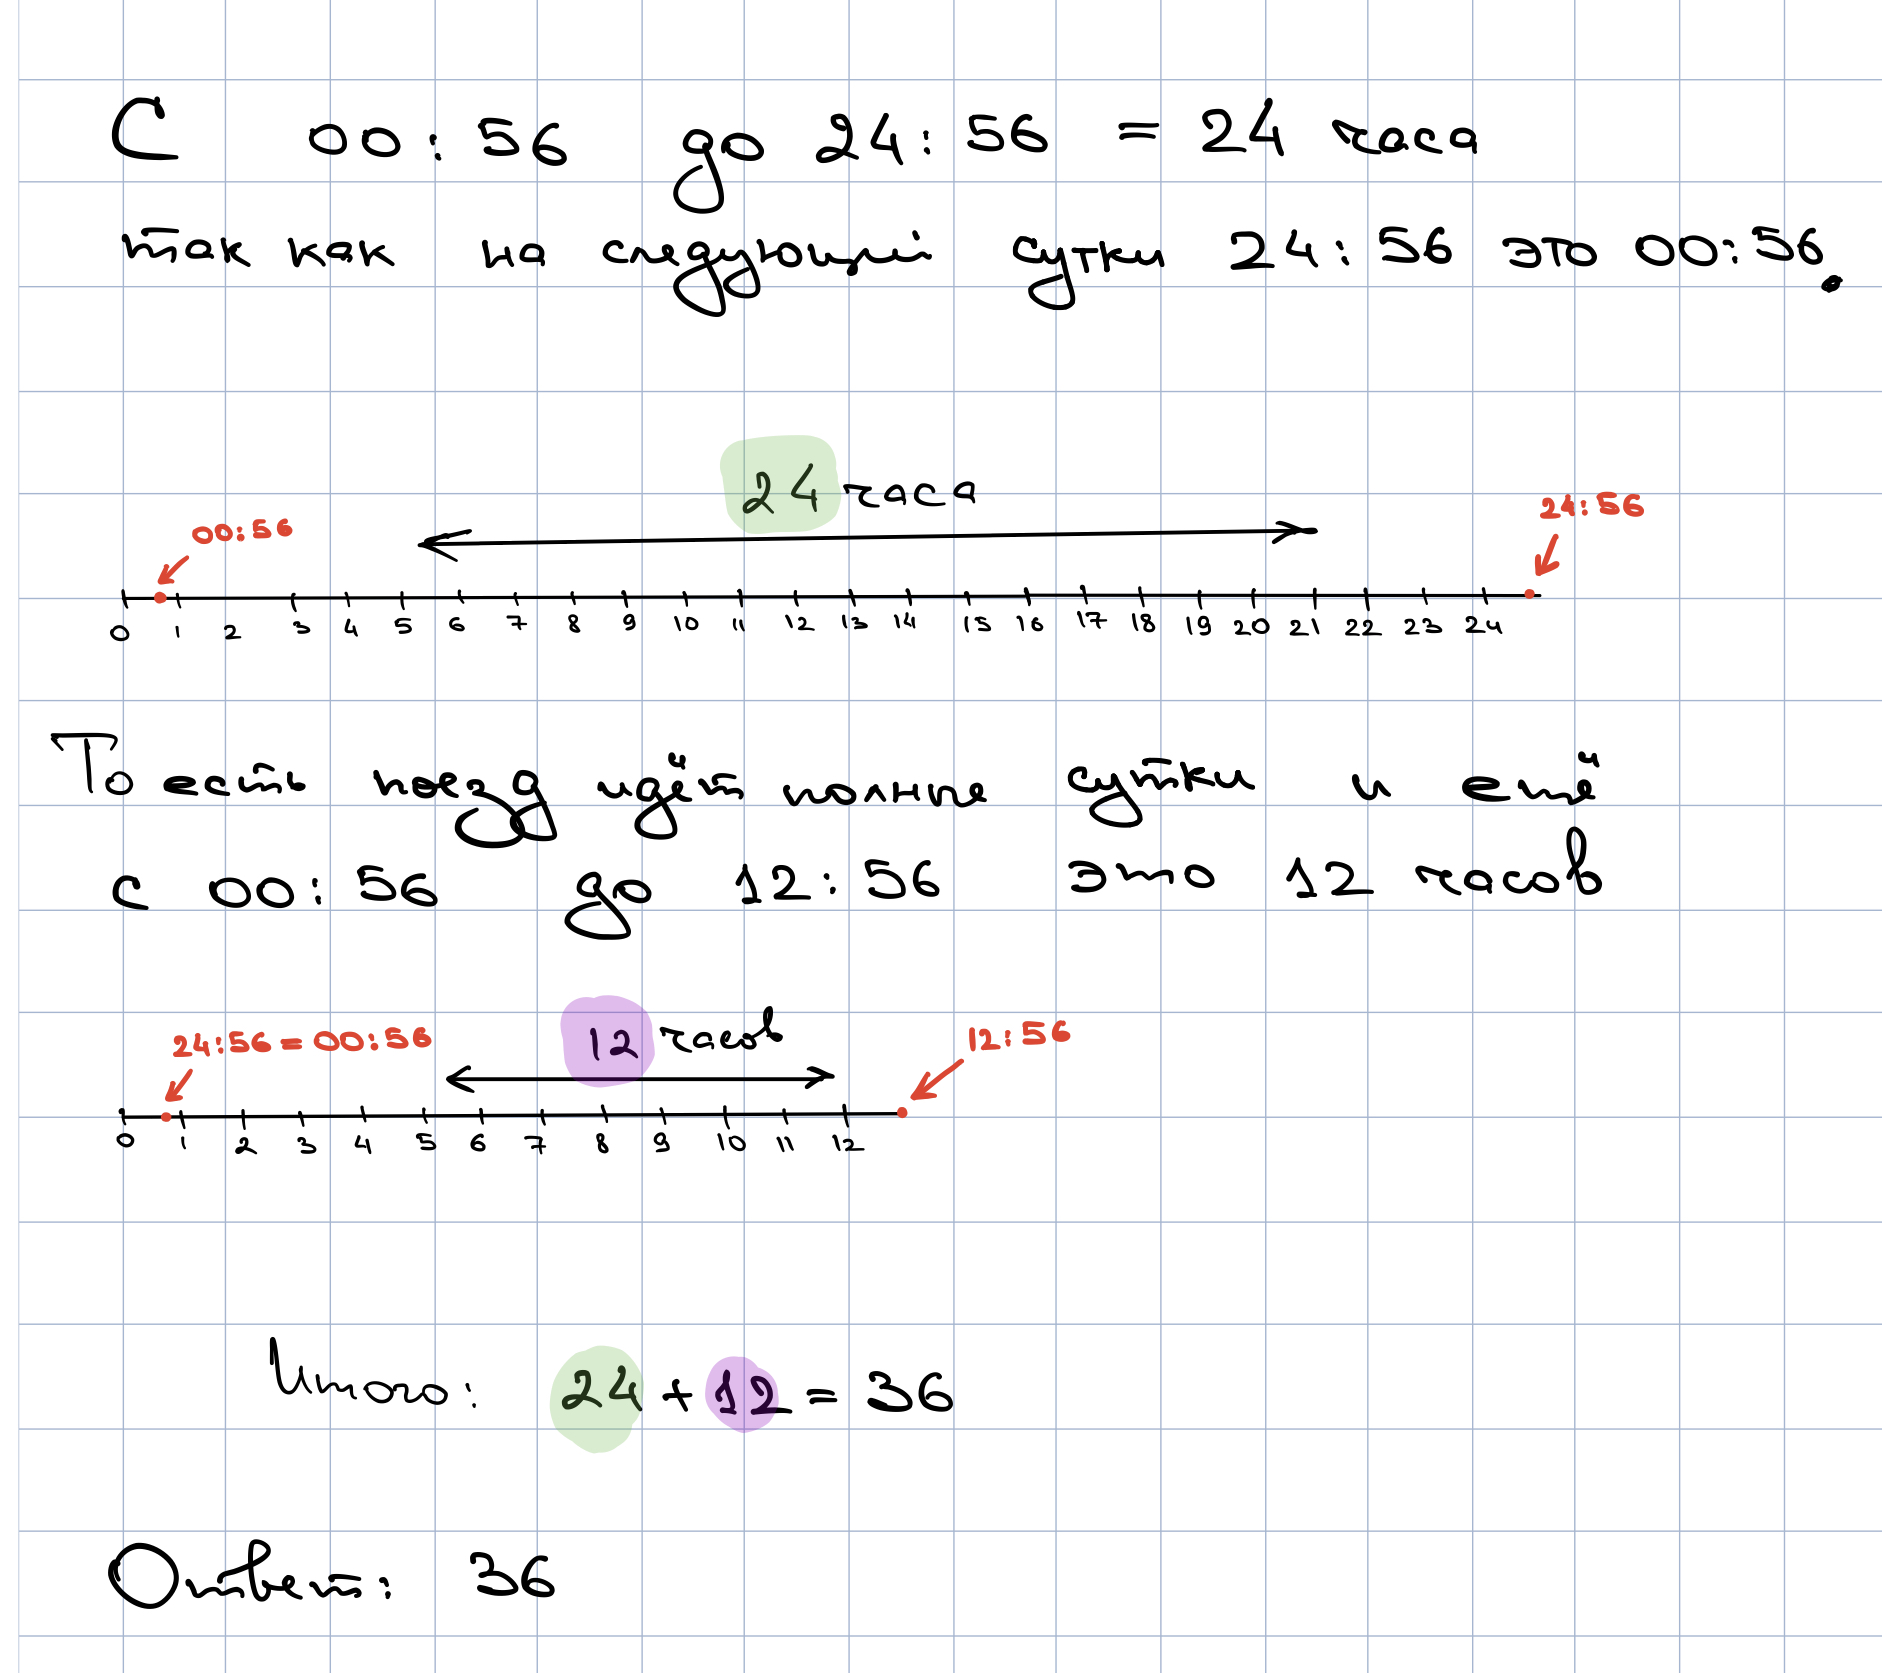 С 00:56 до 24:56 = 24 часа
так как на следующий сутки 24:56 это 00:56.
24 часа
00:56
24:56
0 1 2 3 4 5 6 7 8 9 10 11 12 13 14 15 16 17 18 19 20 21 22 23 24
То есть поезд идёт полные сутки и ещё
с 00:56 до 12:56 это 12 часов
24:56 = 00:56
12 часов
12:56
0 1 2 3 4 5 6 7 8 9 10 11 12
Итого: 24 + 12 = 36
Ответ: 36